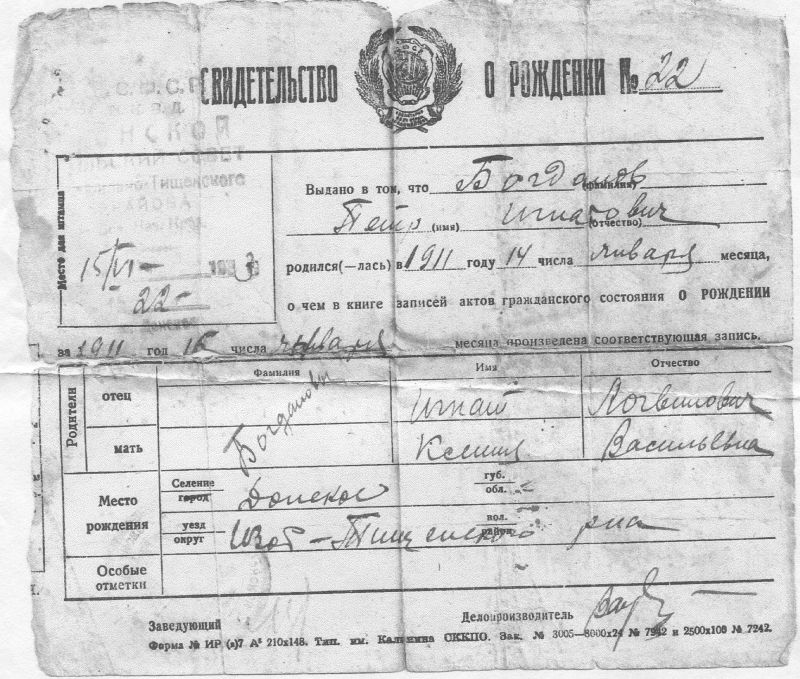 СВИДЕТЕЛЬСТВО О РОЖДЕНИИ № 22
С. Ф. С. Р.
В. Д.
НСКОЙ
ЛЬСКИЙ СОВЕТ
Тищенского
РАЙОНА
Место для штампа
15/VI–
22–
Выдано в том, что Богданов
(фамилия)
Петр (имя) Игнатович (отчество)
родился(—лась) в 1911 году 14 числа января месяца,
о чем в книге записей актов гражданского состояния О РОЖДЕНИИ
за 1911 год 15 числа января месяца произведена соответствующая запись.
Фамилия Имя Отчество
Родители
отец Игнат Логвинович
Богдановы
мать Ксения Васильевна
Место рождения
Селение город Донское губ. обл.
уезд округ Изоб–Тищенского вол. район р-на
Особые отметки
Заведующий Делопроизводитель
Форма № ИР (а)7 А⁵ 210х148. Тип. им. Калинина СККПО. Зак. № 3005—8000х24 № 7942 и 2500х100 № 7242.